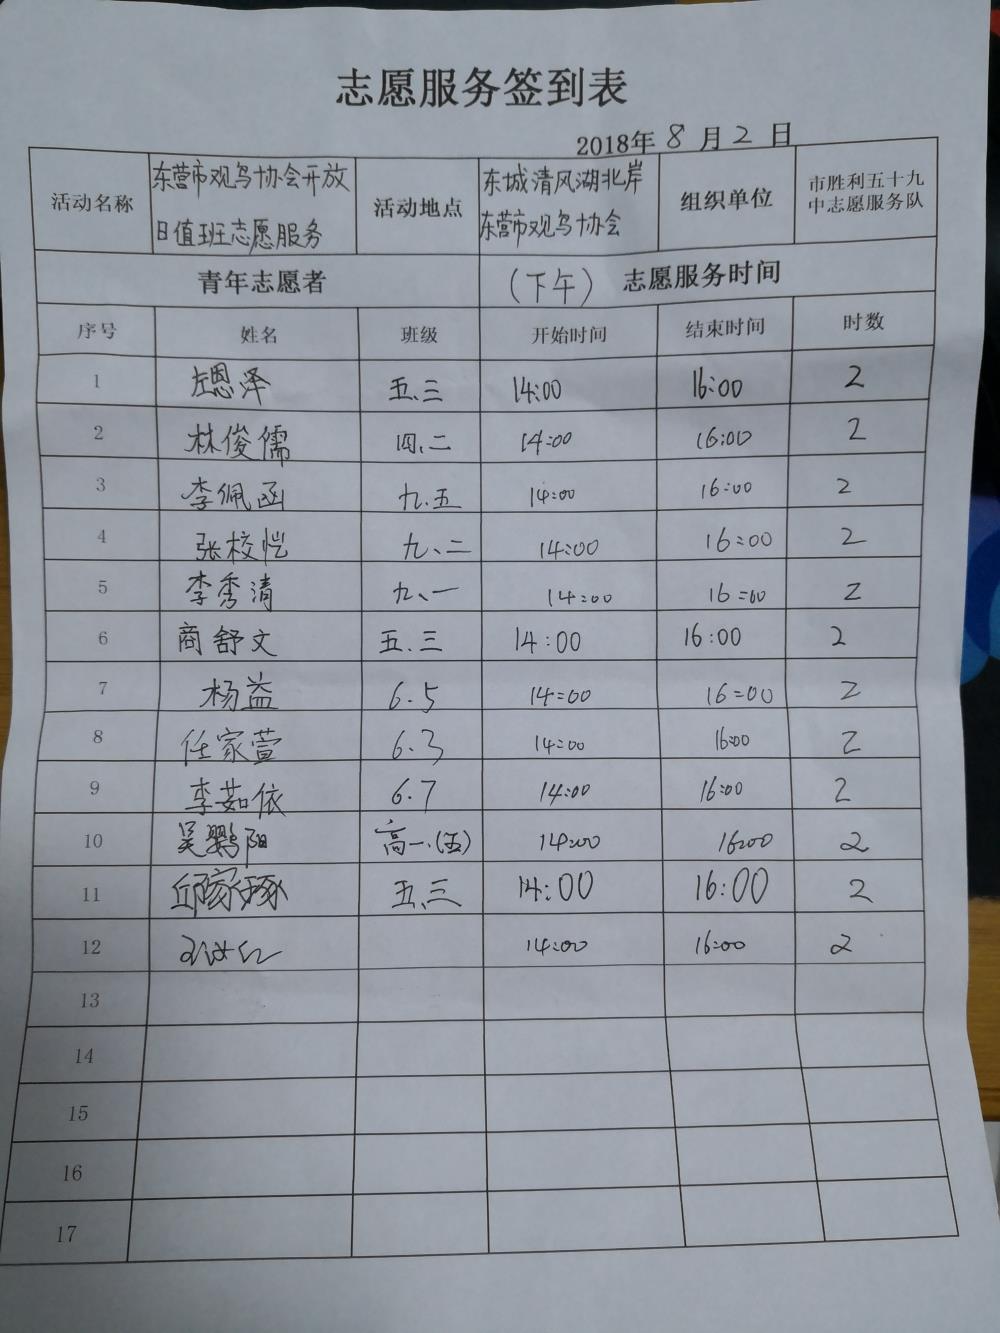 志愿服务签到表
2018年 8 月 2 日
活动名称 东营市观鸟协会开放日值班志愿服务 活动地点 东城清风湖北岸东营市观鸟协会 组织单位 市胜利五十九中志愿服务队
青年志愿者 (下午) 志愿服务时间
序号 姓名 班级 开始时间 结束时间 时数
1 左恩泽 五.三 14:00 16:00 2
2 林俊儒 四.二 14:00 16:00 2
3 李佩函 九.五 14:00 16:00 2
4 张校恺 九、二 14:00 16:00 2
5 李秀清 九、一 14:00 16:00 2
6 商舒文 五.三 14:00 16:00 2
7 杨益 6.5 14:00 16:00 2
8 任家萱 6.3 14:00 16:00 2
9 李茹依 6.7 14:00 16:00 2
10 吴鹦阳 高一.(五) 14:00 16:00 2
11 五.三 14:00 16:00 2
12 14:00 16:00 2
13
14
15
16
17